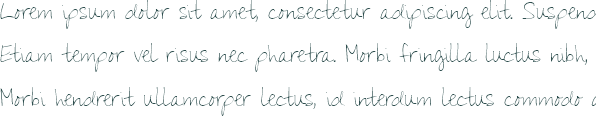 Lorem ipsum dolor sit amet, consectetur adipiscing elit. Suspend
Etiam tempor vel risus nec pharetra. Morbi fringilla luctus nibh,
Morbi hendrerit ullamcorper lectus, id interdum lectus commodo